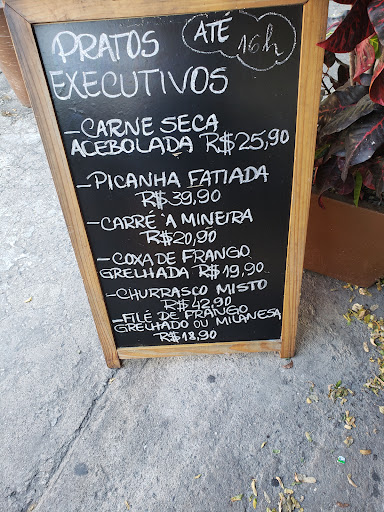 PRATOS ATÉ 16h
EXECUTIVOS
-CARNE SECA
ACEBOLADA R$25,90
-PICANHA FATIADA
R$39,90
-CARRÉ À MINEIRA
R$20,90
-COXA DE FRANGO
GRELHADA R$19,90
-CHURRASCO MISTO
R$42,90
-FILÉ DE FRANGO
GRELHADO OU MILANESA
R$18,90